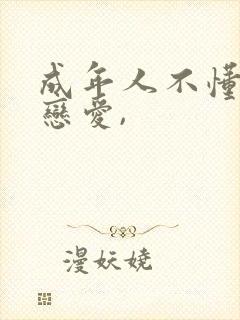 成年人不懂
戀愛,
漫妖嬈